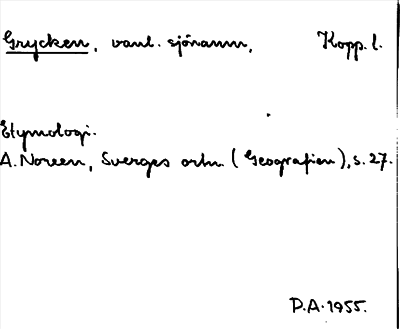 Grycken, vanl. sjönamn, Kopp. l.
Etymologi.
A. Noreen, Sveriges ortn. (Geografien), s. 27.
P.A. 1955.